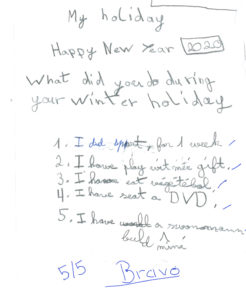 My holiday
Happy New Year 2020
What did you do during
your winter holiday
1. I did sport, for 1 week
2. I have play wit mée gift.
3. I have eat vegetebol.
4. I have seat a DVD.
5. I have a
build 1
mine
5/5 Bravo